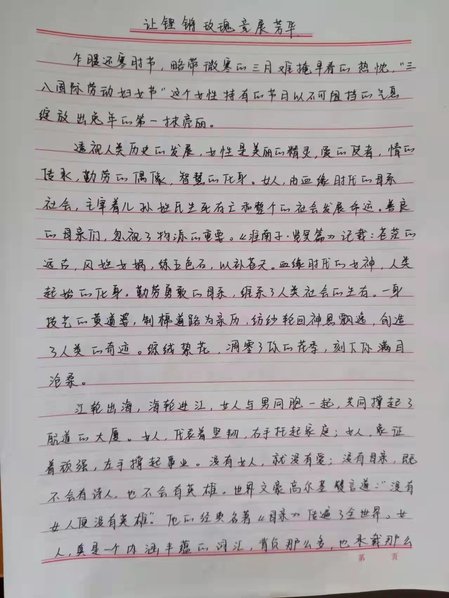 让铿锵玫瑰竞展芳华
乍暖还寒时节，略带微寒的三月难掩早春的热忱，“三
八国际劳动妇女节”这个女性特有的节日以不可阻挡的气息
绽放出兔年的第一抹亮丽。
透视人类历史的发展，女性是美丽的精灵，爱的使者，情的
传承，勤劳的偶像，智慧的化身。女人，由血缘时代的母系
社会，主宰着儿孙姓氏生死存亡和整个的社会发展命运。善良
的母亲们，忽视了物源的重要。《淮南子·览冥篇》记载：苍茫的
远古，风姓女娲，练五色石，以补苍天。血缘时代的女神，人类
起始的化身。勤劳勇敢的母亲，维系了人类社会的生存。一身
技艺的黄道婆，制棉道路为亲历，纺纱轮回神思飘逸，创造
了人类的奇迹。缤线梨花，凋零了你的花季，刻下你满目
沧桑。
江轮出海，海轮进江，女人与男同胞一起，共同撑起了
航道的大厦。女人，代表着坚韧，右手托起家庭；女人，象征
着顽强，左手撑起事业。没有女人，就没有爱；没有母亲，既
不会有诗人，也不会有英雄。世界文豪高尔基曾言道：“没有
女人便没有英雄”。他的经典名著《母亲》传遍了全世界。女
人，真是一个内涵丰蕴的词汇，背负那么多，也承载那么
第 页